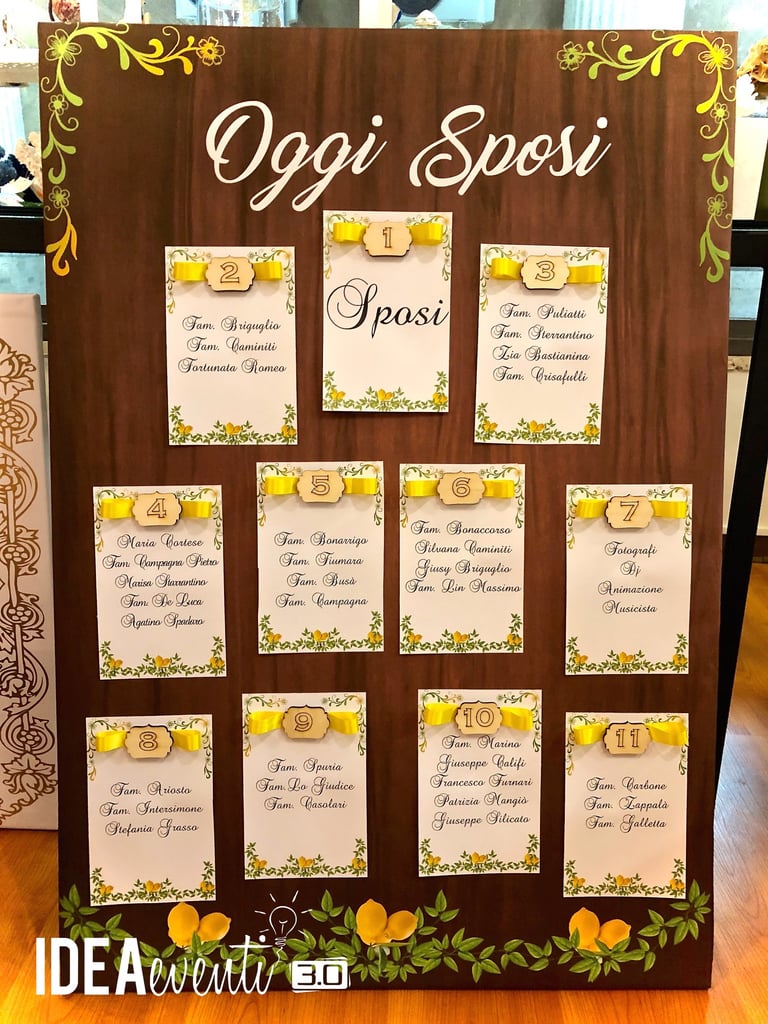 Oggi Sposi
1
Sposi
2
Fam. Briguglio
Fam. Caminiti
Fortunata Romeo
3
Fam. Puliatti
Fam. Sterrantino
Zia Bastianina
Fam. Crisafulli
4
Maria Cortese
Fam. Campagna Pietro
Marisa Sterrantino
Fam. De Luca
Agatino Spadaro
5
Fam. Bonarrigo
Fam. Fiumara
Fam. Busà
Fam. Campagna
6
Fam. Bonaccorso
Silvana Caminiti
Giusy Briguglio
Fam. Lin Massimo
7
Fotografi
Dj
Animazione
Musicista
8
Fam. Ariosto
Fam. Intersimone
Stefania Grasso
9
Fam. Spuria
Fam. Lo Giudice
Fam. Casolari
10
Fam. Marino
Giuseppe Califi
Francesco Furnari
Patrizia Mangiò
Giuseppe Silicato
11
Fam. Carbone
Fam. Zappalà
Fam. Galletta
IDEAeventi 3.0